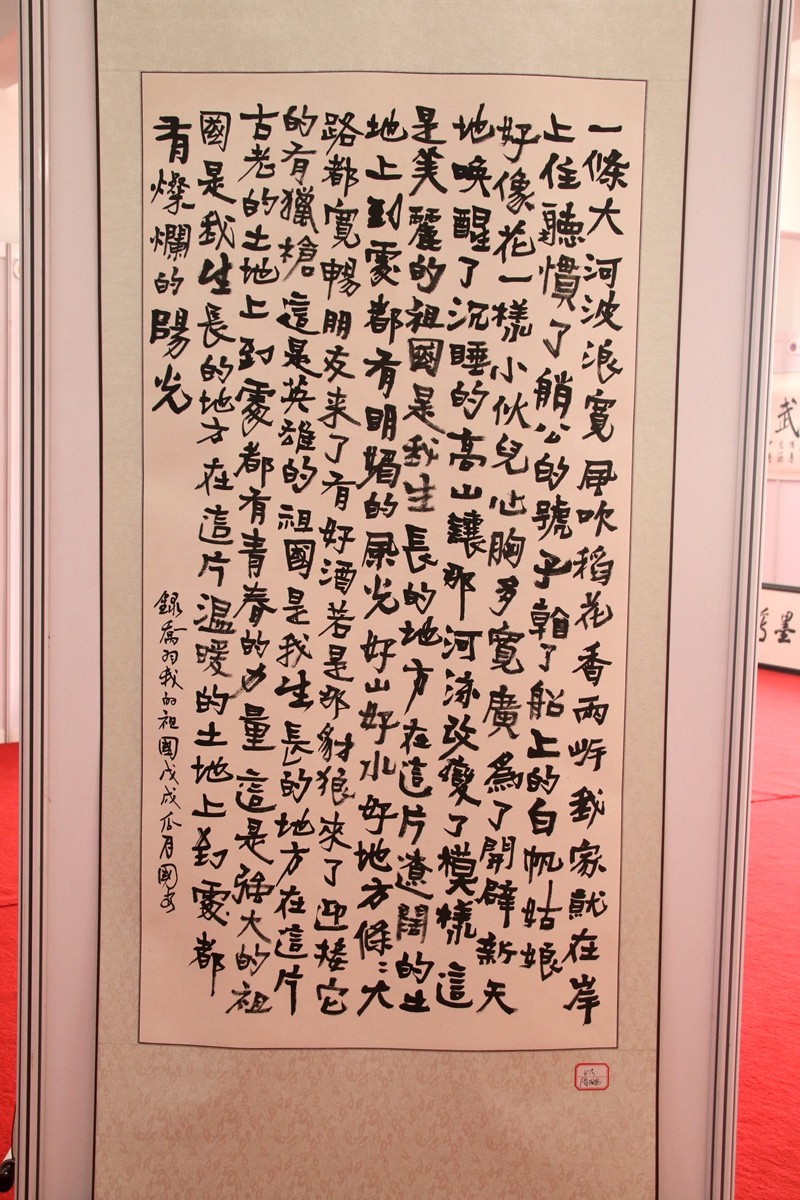 一條大河波浪寬風吹稻花香兩岸我家就在岸
上住聽慣了艄公的號子了船上的白帆姑娘
好像花一樣小伙兒心胸多寬廣為了開辟新天
地喚醒了沉睡的高山讓那河流改變了模樣這
是美麗的祖國是我生長的地方在這片遼闊的土
地上到處都有明媚的風光好山好水好地方條々大
路都寬暢朋友来了有好酒若是那豺狼來了迎接它
的有獵槍這是英雄的祖國是我生長的地方在這片
古老的土地上到處都有青春的力量這是強大的祖
國是我生長的地方在這片温暖的土地上到處都
有燦爛的陽光
錄喬羽我的祖國戊戌瓜月國安
武
墨